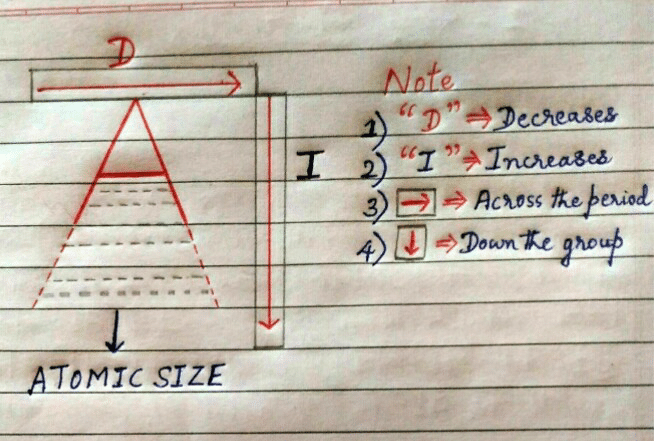 D
I
ATOMIC SIZE
Note
1) "D" ⇒ Decreases
2) "I" ⇒ Increases
3) → ⇒ Across the period
4) ↓ ⇒ Down the group